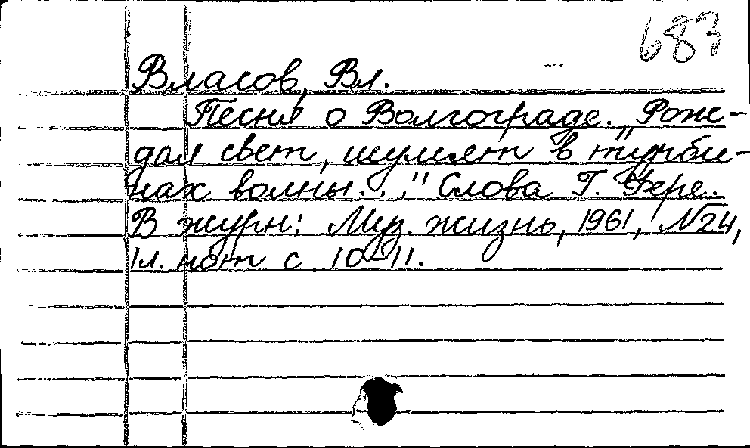 683
Власов, Вл.
Песня о Волгограде. "Рож-
дая свет, шумят в турби-
нах волны..." Слова Г. Фере.
В журн: Муз. жизнь, 1961, №24,
1л. нот с 10-11.